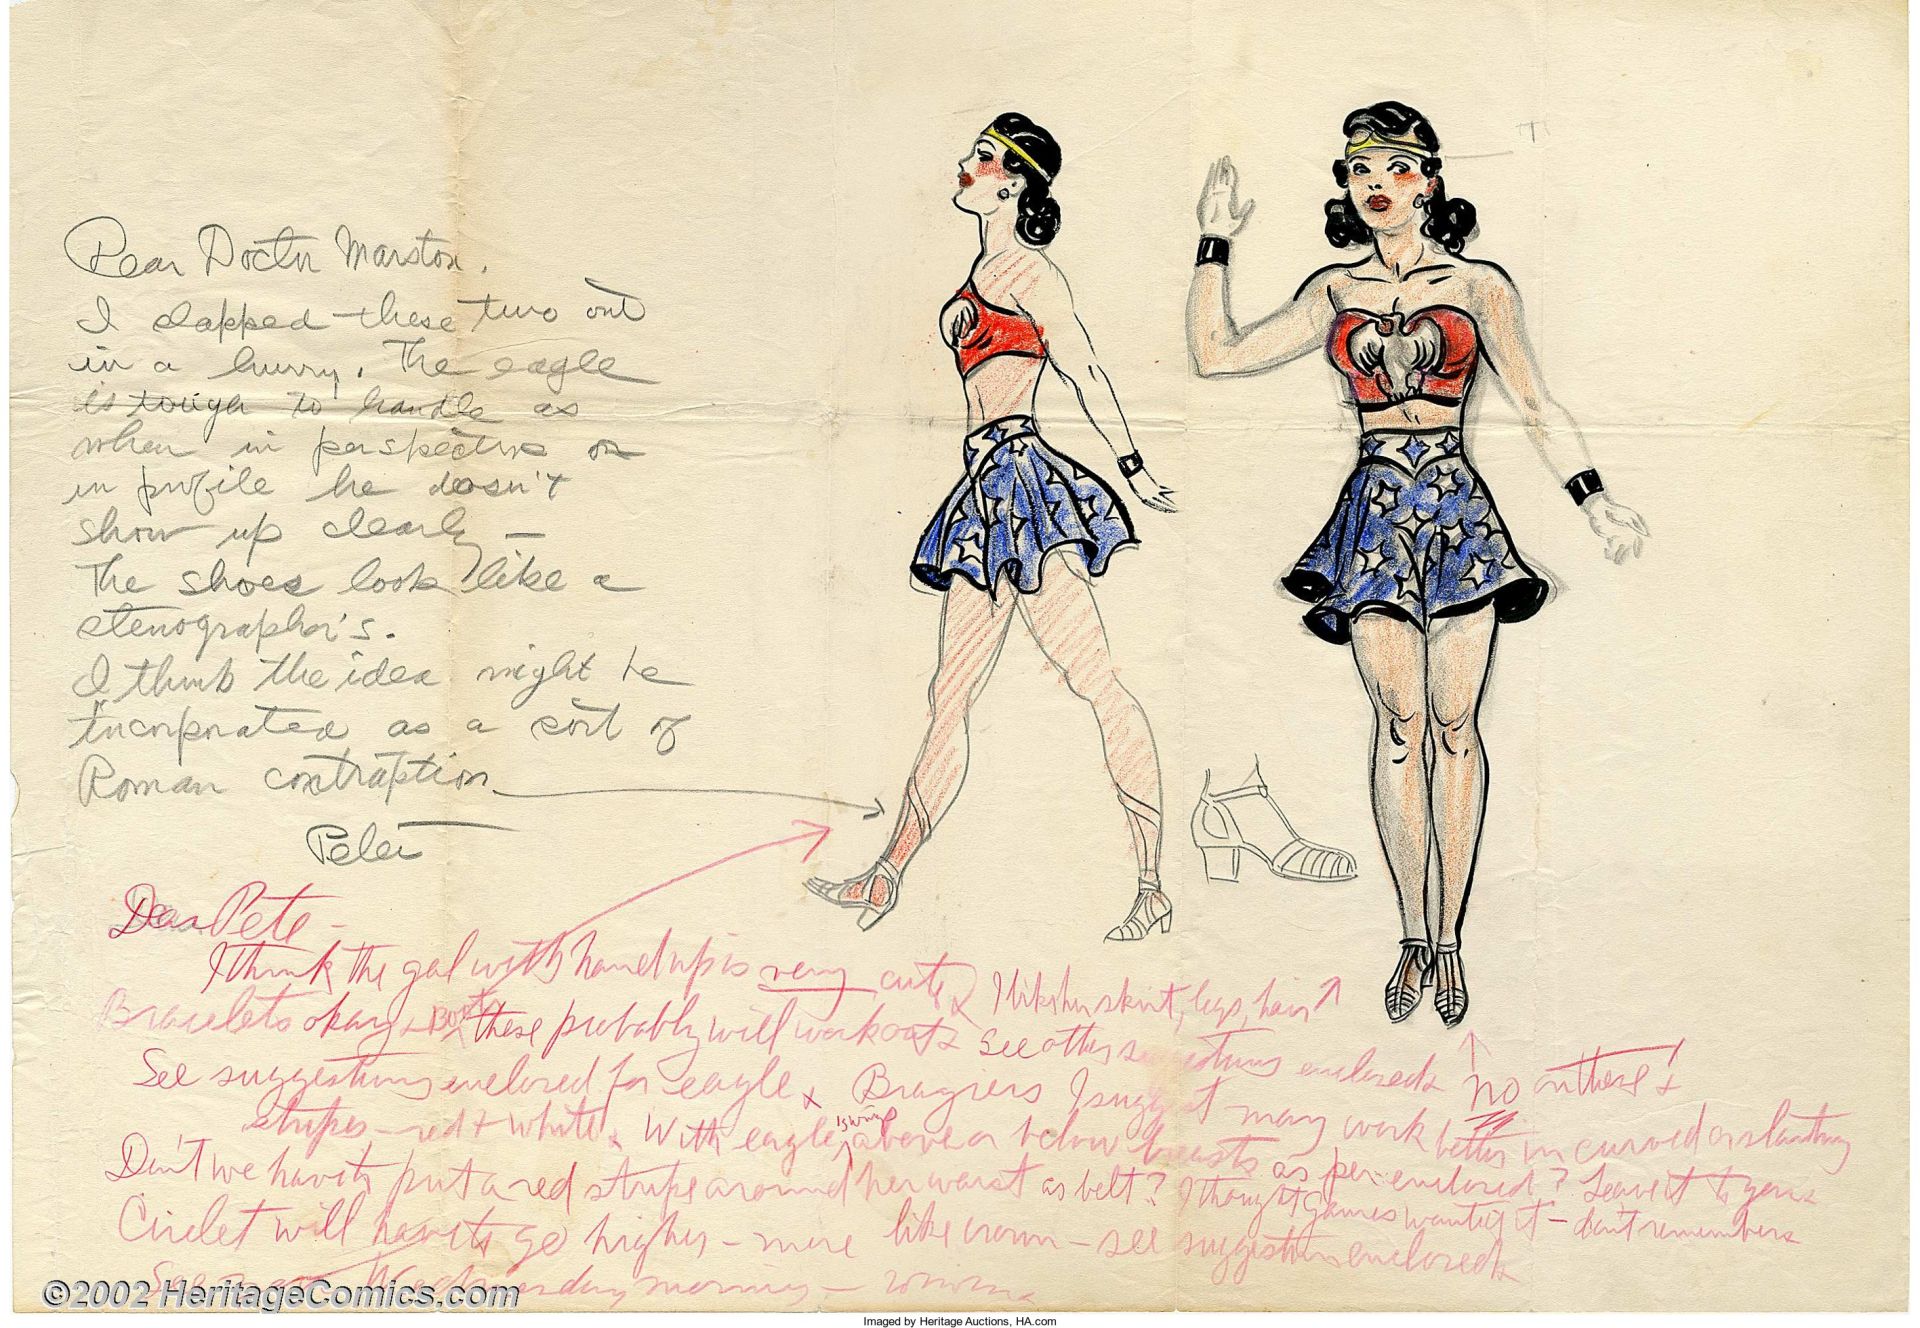 Dear Doctor Marston,
I slapped these two out
in a hurry. The eagle
is tough to handle as
when in perspective or
in profile he doesn't
show up clearly —
The shoes look like a
stenographer's.
I think the idea might be
incorporated as a sort of
Roman contraption
Peter
Dear Pete –
I think the gal with hand up is very cute. I like her skirt, legs, hair
Bracelets okay + Boots these probably will work out. See other suggestions enclosed. No on these!
See suggestions enclosed for eagle. I suggest may work better in curved or slanting
stripes – red + white. With eagle's wings above or below breasts as per enclosed? Leave it to you.
Don't we have to put a red stripe around her waist as belt? I thought Gaines wanted it – don't remember.
Circlet will have to go higher – more like crown – see suggestion enclosed.
See Wednesday morning –
©2002 HeritageComics.com
Imaged by Heritage Auctions, HA.com